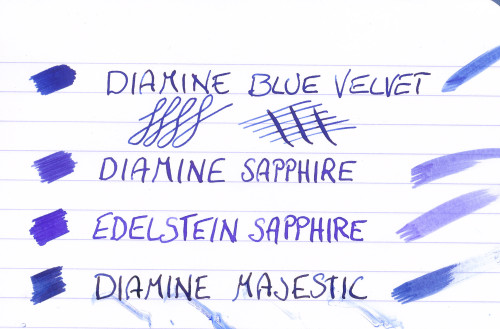 DIAMINE BLUE VELVET
DIAMINE SAPPHIRE
EDELSTEIN SAPPHIRE
DIAMINE MAJESTIC